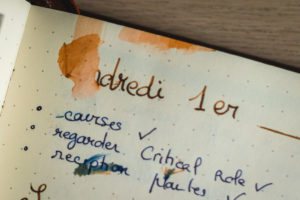 ndredi 1er
courses ✓
regarder Critical Role ✓
reception plantes ✓